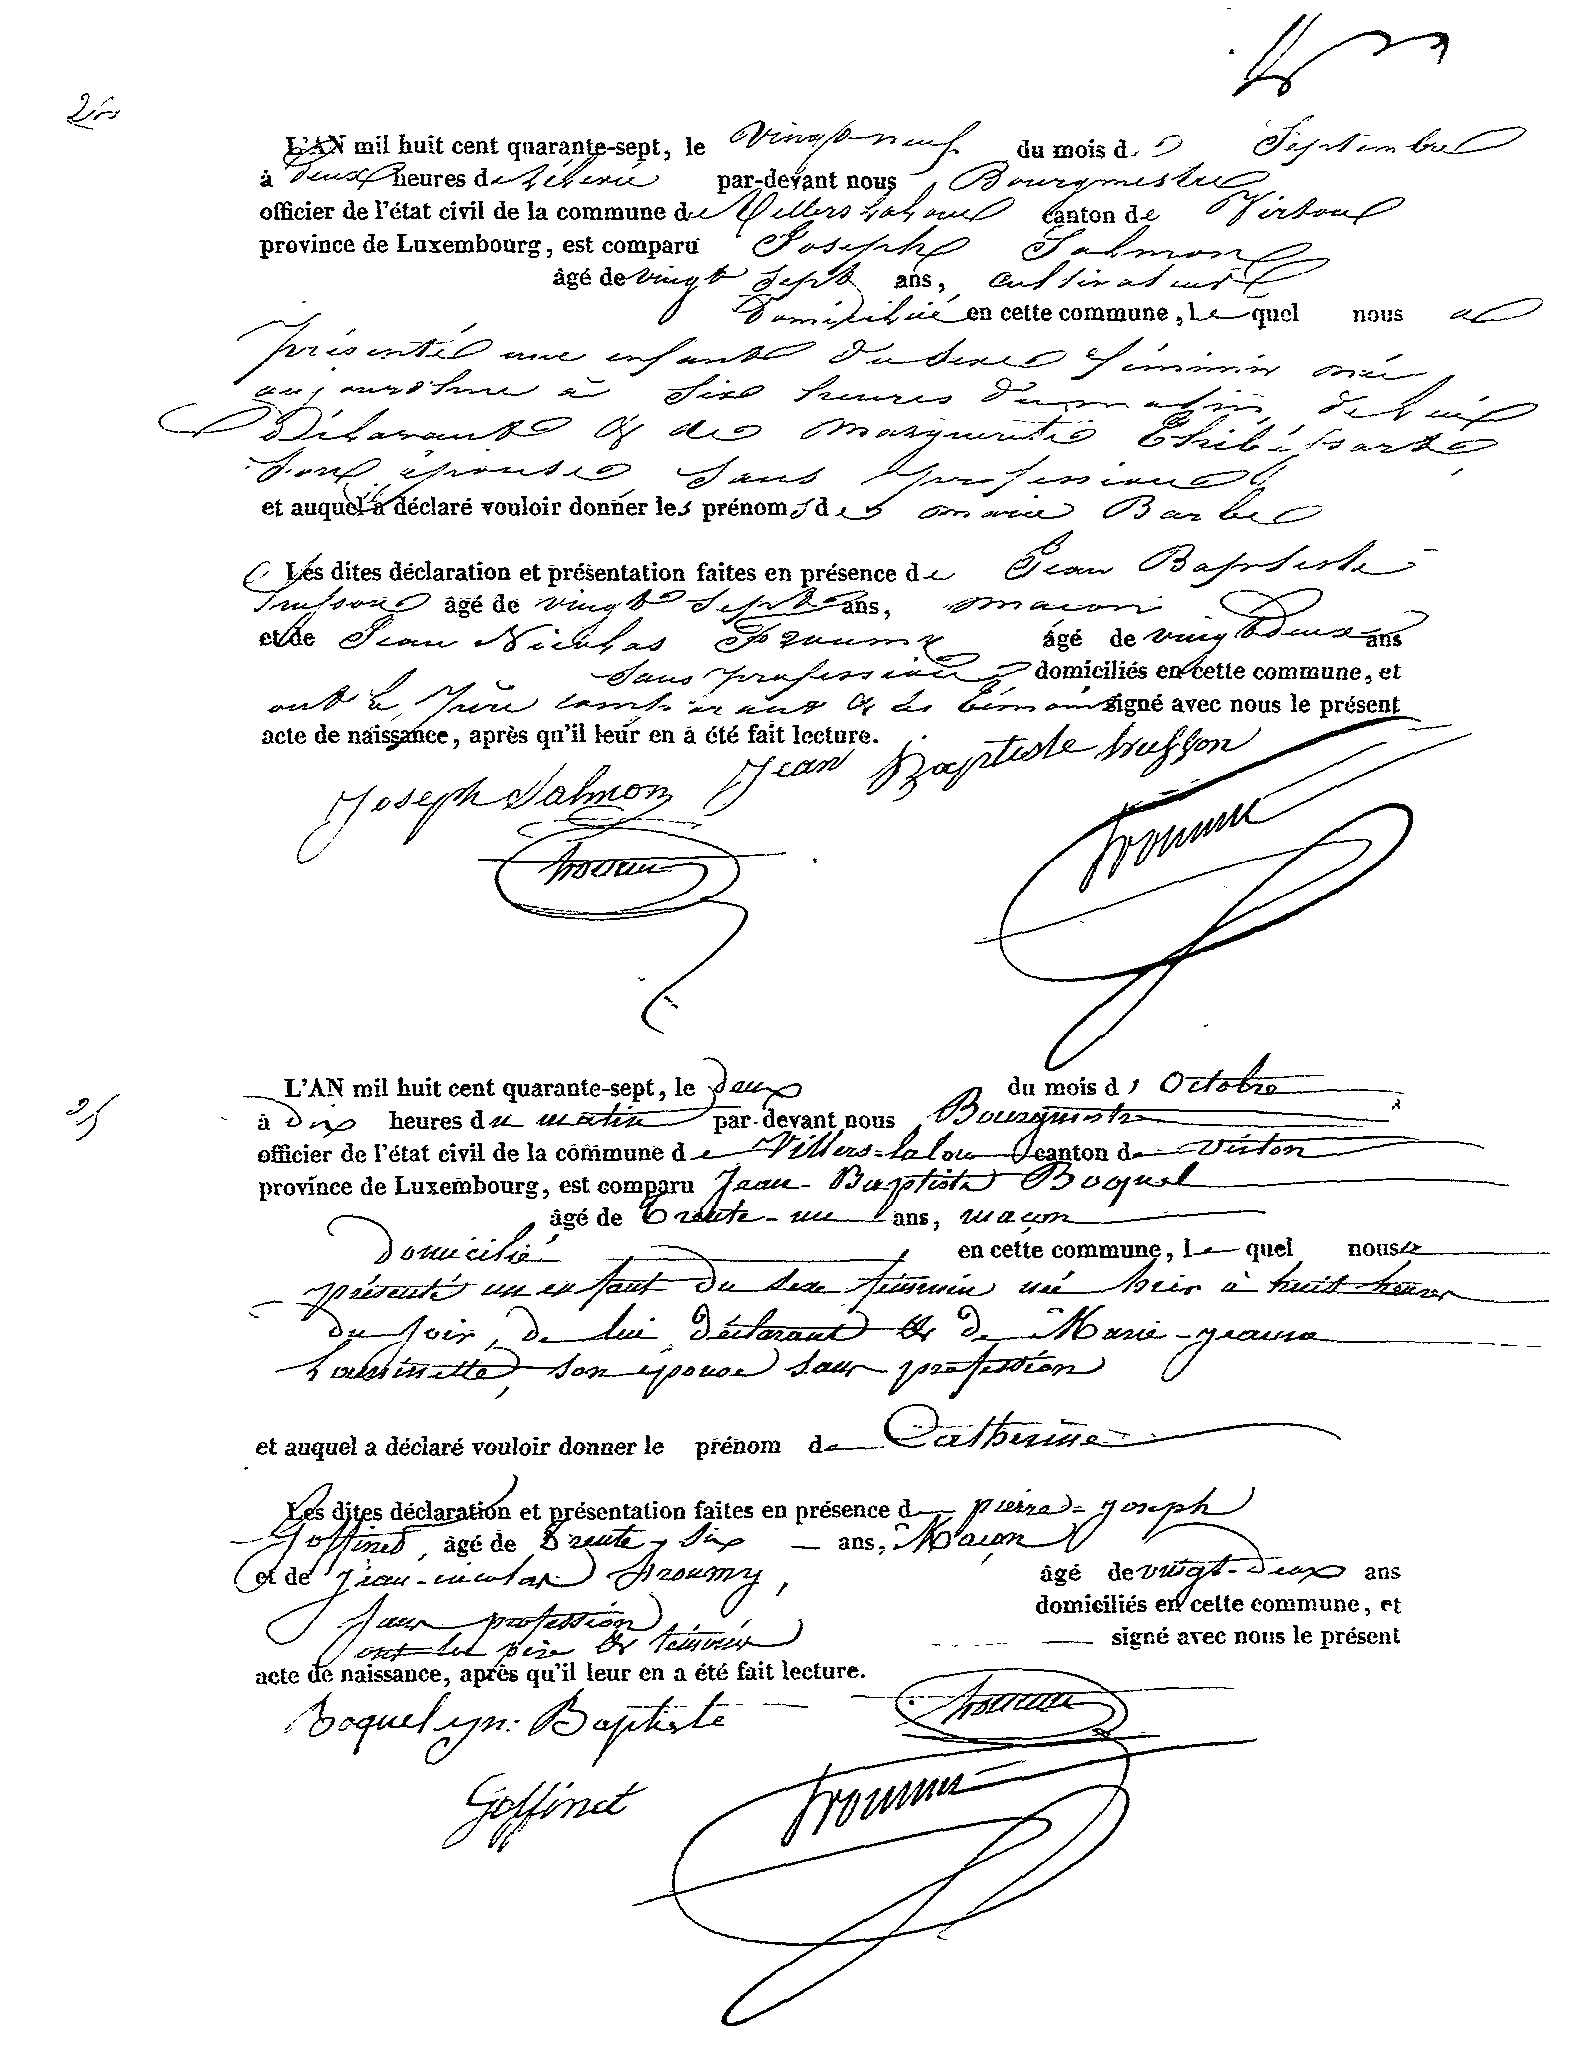 L'AN mil huit cent quarante-sept, le Vingt neuf du mois de Septembre
à deux heures de relevée par-devant nous, Bourgmestre
officier de l'état civil de la commune de Villers laloue canton de Virton
province de Luxembourg, est comparu Joseph Salmon
âgé de vingt sept ans, cultivateur
Domicilié en cette commune, le quel nous a
présenté une enfant du sexe féminin née
aujourdhui à six heures du matin, de lui
Déclarant & de Marguerite
son épouse, sans profession
et auquel a déclaré vouloir donner les prénoms des marie Barbe
Les dites déclaration et présentation faites en présence de Jean Baptiste
Truffon âgé de vingt sept ans, maçon
et de Jean Nicolas Froumy âgé de vingt deux ans
sans profession domiciliés en cette commune, et
ont le père comparant & les témoins signé avec nous le présent
acte de naissance, après qu'il leur en a été fait lecture.
Joseph Salmon Jean Baptiste truffon
25
L'AN mil huit cent quarante-sept, le deux du mois d' Octobre
à dix heures du matin par-devant nous, Bourgmestre
officier de l'état civil de la commune de Villers=laloue canton de virton
province de Luxembourg, est comparu Jean-Baptiste Boquel
âgé de trente-un ans, maçon
Domicilié en cette commune, le quel nous a
présenté un enfant du sexe féminin né hier à huit heures
du soir, de lui déclarant & de Marie-jeanne
son épouse sans profession
et auquel a déclaré vouloir donner le prénom de Catherine
Les dites déclaration et présentation faites en présence de pierre=joseph
Goffinet, âgé de trente-six ans, Maçon
et de jean-nicolas froumy, âgé de vingt-deux ans
sans profession domiciliés en cette commune, et
ont les père & témoins signé avec nous le présent
acte de naissance, après qu'il leur en a été fait lecture.
Boquel jn: Baptiste
Goffinet